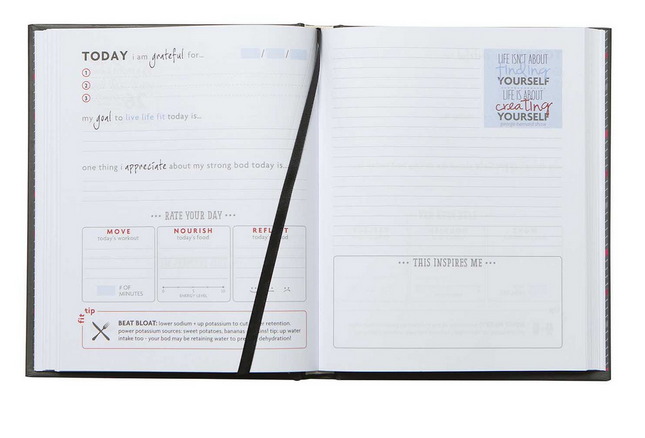 TODAY i am grateful for...
/ /
1
2
3
my goal to live life fit today is...
one thing i appreciate about my strong bod today is...
••• RATE YOUR DAY •••
MOVE
today's workout
# OF
MINUTES
NOURISH
today's food
ENERGY LEVEL
REFLECT
fit tip
BEAT BLOAT: lower sodium + up potassium to retention.
power potassium sources: sweet potatoes, bananas tip: up water
intake too - your bod may be retaining water to dehydration!
LIFE ISN'T ABOUT
finding
YOURSELF
LIFE IS ABOUT
creating
YOURSELF
••• THIS INSPIRES ME •••